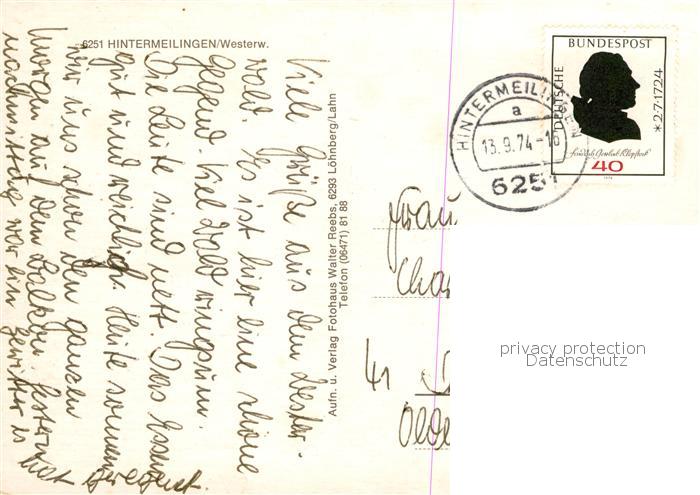 6251 HINTERMEILINGEN/Westerw.
Viele Grüße aus dem Wester-
wald. Es ist hier eine schöne
Gegend. Viel Wald ringsum.
Die Leute sind nett. Das Essen
gut und reichlich. Heute sonnen
wir uns schon den ganzen
Morgen auf dem Balkon. Gestern
nachmittag war ein Gewitter es hat
geregnet.
Aufn. u. Verlag Fotohaus Walter Reebs, 6293 Löhnberg/Lahn
Telefon (06471) 81 88
HINTERMEILINGEN
a
13.9.74-16
6251
DEUTSCHE
BUNDESPOST
*2·7·1724
Friedrich Gottlieb Klopstock
40
1974
Frau
41
privacy protection
Datenschutz